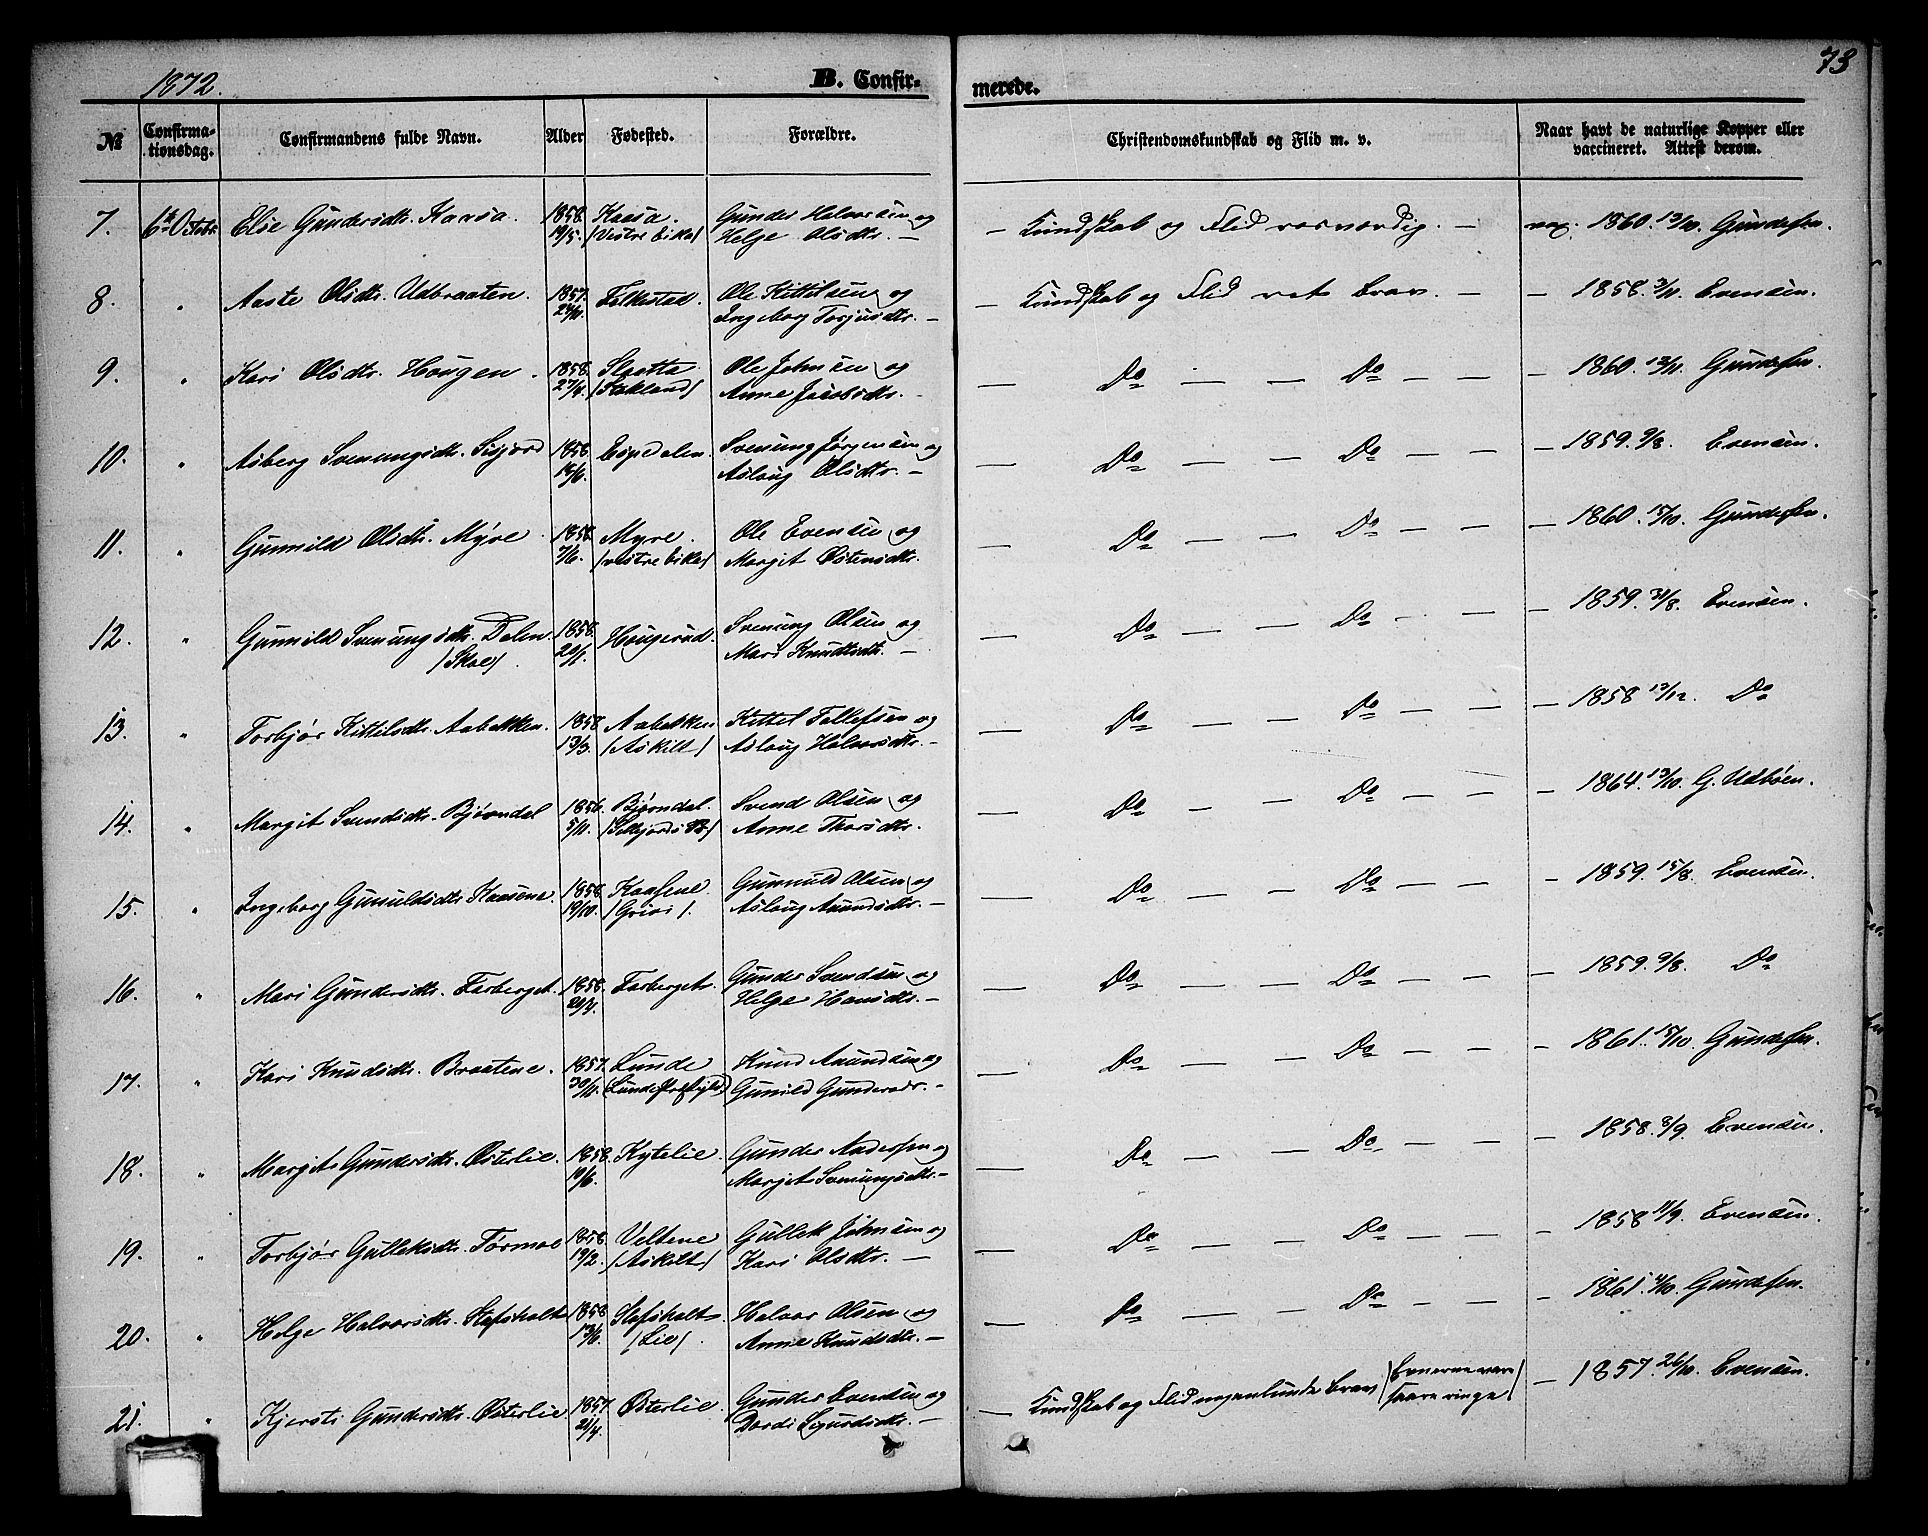 73
1872.
B. Confir-
merede.
№ Confirma-tionsdag. Confirmandens fulde Navn. Alder Fødested. Forældre. Christendomskundskab og Flid m. v. Naar havt de naturlige Kopper eller vaccineret. Attest derom.
7. 6te Octobr. Elie Gundersdtr. Kaasa. 1858 19/5. Kaasa. (Vestre Eika) Gunder Halvorsen og Helge Olsdtr. — — Kundskab og Flid rosværdig. — vax. 1860. 13/10. Gundersen.
8. " Aaste Olsdtr. Udbraaten. 1857. 24/11. Folkestad. Ole Kittilsen og Ingeborg Torjusdtr. — — Kundskab og Flid ret brav. — — 1858. 3/11. Evensen.
9. " Kari Olsdtr. Haugen. 1858. 27/4. Slaatta (Sakland) Ole Johnsen og Anne Jacobsdtr. — — Do — Do — — — 1860. 13/11. Gundersen.
10. " Asberg Svenungsdtr. Sisjord 1858 14/6. Espdalen. Svenung Jørgensen og Aslaug Olsdtr. — — Do — — Do — — — 1859. 9/8. Evensen.
11. " Gunnild Olsdtr. Myre. 1858. 7/6. Myre. (vestre Eika) Ole Evensen og Margit Østensdtr. — Do — — Do — — — 1860. 15/10. Gundersen.
12. " Gunnild Svenungsdtr. Dalen. (Skoe) 1858. 22/1. Haugerud. Svenung Olsen og Mari Knudtsdtr. — — Do — — Do — — — 1859. 31/8. Evensen.
13. " Torbjør Kittilsdtr. Aabakken. 1858 13/3. Aabakken (Askilt) Kittel Tollefsen og Aslaug Halvorsdtr. — — Do — — Do — — — 1858 13/12. Do
14. " Margit Svendsdtr. Bjørndal 1856. 5/11. Bjørndal. Svend Olsen og Anne Thorsdtr. — Do — — Do — — — 1864. 13/10. G. Udbøen.
15. " Ingeborg Gunuldsdtr. Kaasene. 1858. 19/10. Kaasene (Grivi). Gunnuld Olsen og Aslaug Aanundsdtr. — — Do — — Do — — — 1859. 15/8. Evensen.
16. " Mari Gundersdtr. Farberget. 1858. 20/7. Farberget. Gunder Svendsen og Helge Hansdtr. — — Do — — Do — — — 1859. 9/8. Do
17. " Kari Knudsdtr. Braatene. 1857. 30/10. Lunde (Lunde Præstegjeld) Knud Aanundsen og Gunild Gundersdr. — — Do — — Do — — — 1861. 15/10. Gundersen.
18. " Margit Gundersdtr. Østerlie. 1858. 10/6. Kytelie. Gunder Andersen og Margit Svenungsdtr. — — Do — — Do — — — 1858. 8/9. Evensen.
19. " Torbjør Gulleksdtr. Formoe 1858. 19/2. Veltene (Askilt) Gullek Johnsen og Kari Olsdtr. — — Do — — Do — — — 1858 11/9. Evensen.
20. " Helge Halvorsdtr. Stafsholt 1858 13/6. Stafsholt. (Lie). Halvor Olsen og Anne Knudsdtr. — — Do — — Do — — — 1861. 4/10. Gundersen.
21. " Kjersti Gundersdtr. Østerlie 1857. 21/4. Østerlie. Gunder Evensen og Dordi Sjursdtr. — — Kundskab og Flid nogenlunde brav (Evnerne vare saare ringe) — 1857. 26/10. Evensen.